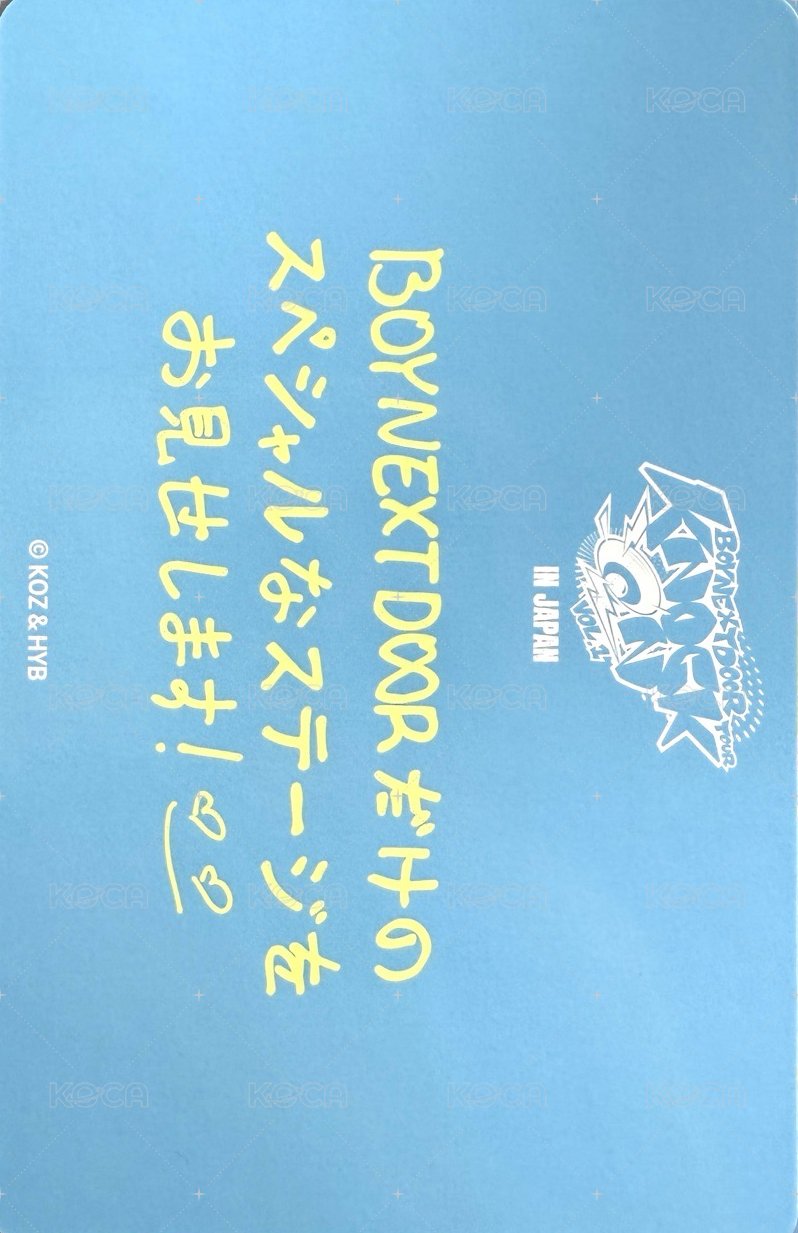 BOYNEXTDOOR TOUR
KNOCK ON
VOL.1
IN JAPAN
BOYNEXTDOORだけの
スペシャルなステージを
お見せします!
© KOZ & HYB
KOCA